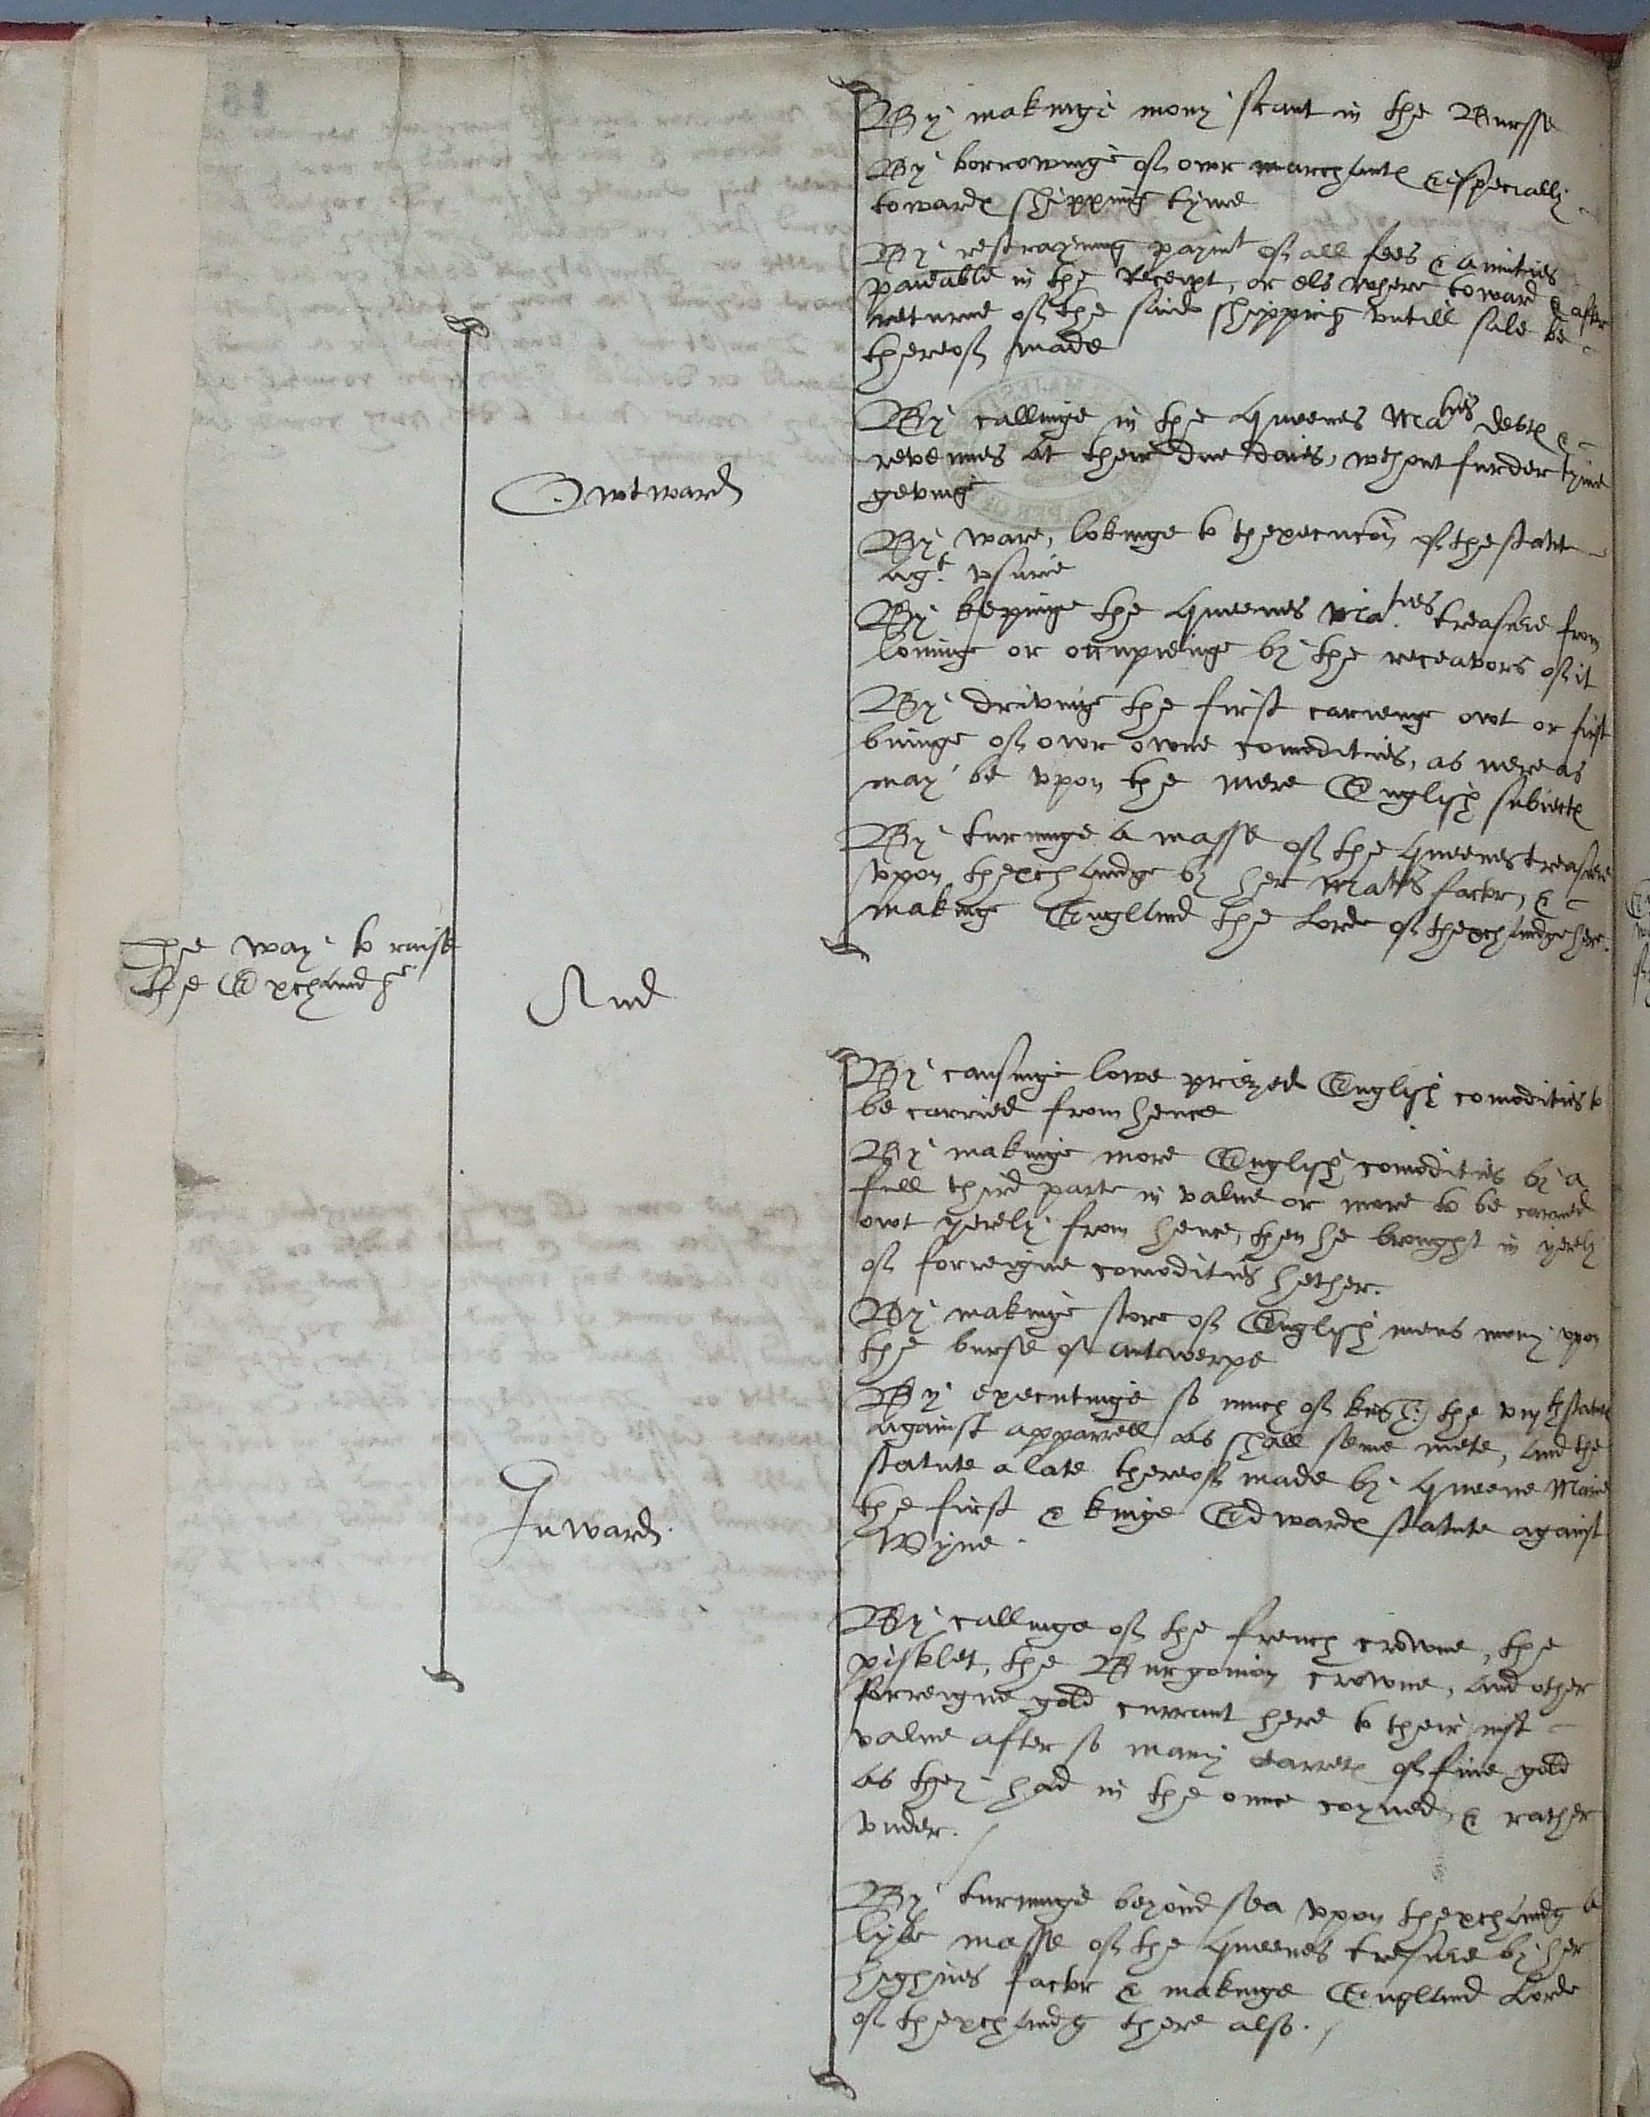 The way to raise
the Exchandge
Owtward
And
Inward
By makinge mony scant in the Bursse
By borrowinge of owr marchantes especially
towardes shipping tyme
By restrayning paimt of all fees & anuities
paieable in the Receipt, or els where toward & after
returne of the said shipping vntill sale be
thereof made
By callinge in the Queenes Maties debtes &
revenues at their due daies, wthout furder tyme
gevinge
By ware, lokinge to thexecucōn of the statute
agt. vsurie
By kepinge the Queenes Maties treasure from
loninge or occupieinge by the receavors of it
By drivinge the first carienge owt or first
buinge of owr owne comodities, as nere as
may be vpon the mere English subiectes
By turninge a masse of the Queenes treasure
vpon thexchandge by her Maties factor, &
makinge England the Lorde of thexchandge here.
By causinge lowe priezed English comodities to
be carried from hence
By makinge more English comodities by a
full third parte in value or more to be carried
owt yerely from hence, then he brought in yerely
of forreigne comodities hether.
By makinge store of English mens mony vpon
the burse of antwerpe
By executinge so much of kinge H: the viijth statute
against apparrell as shall seme mete, and the
statute a late thereof made by Queene Marie
the first & kinge Edwardes statute against
Wyne.
By callinge of the french crowne, the
pistolet, the Burgonion crowne, and other
forreigne gold currant here to their iust
value after so many carretes of fine gold
as they had in the ounce coyned, & rather
vnder.
By turninge beyond sea vpon thexchandg a
lyke masse of the Queenes tresure by her
highnes factor & makinge England Lorde
of thexchandg there also.